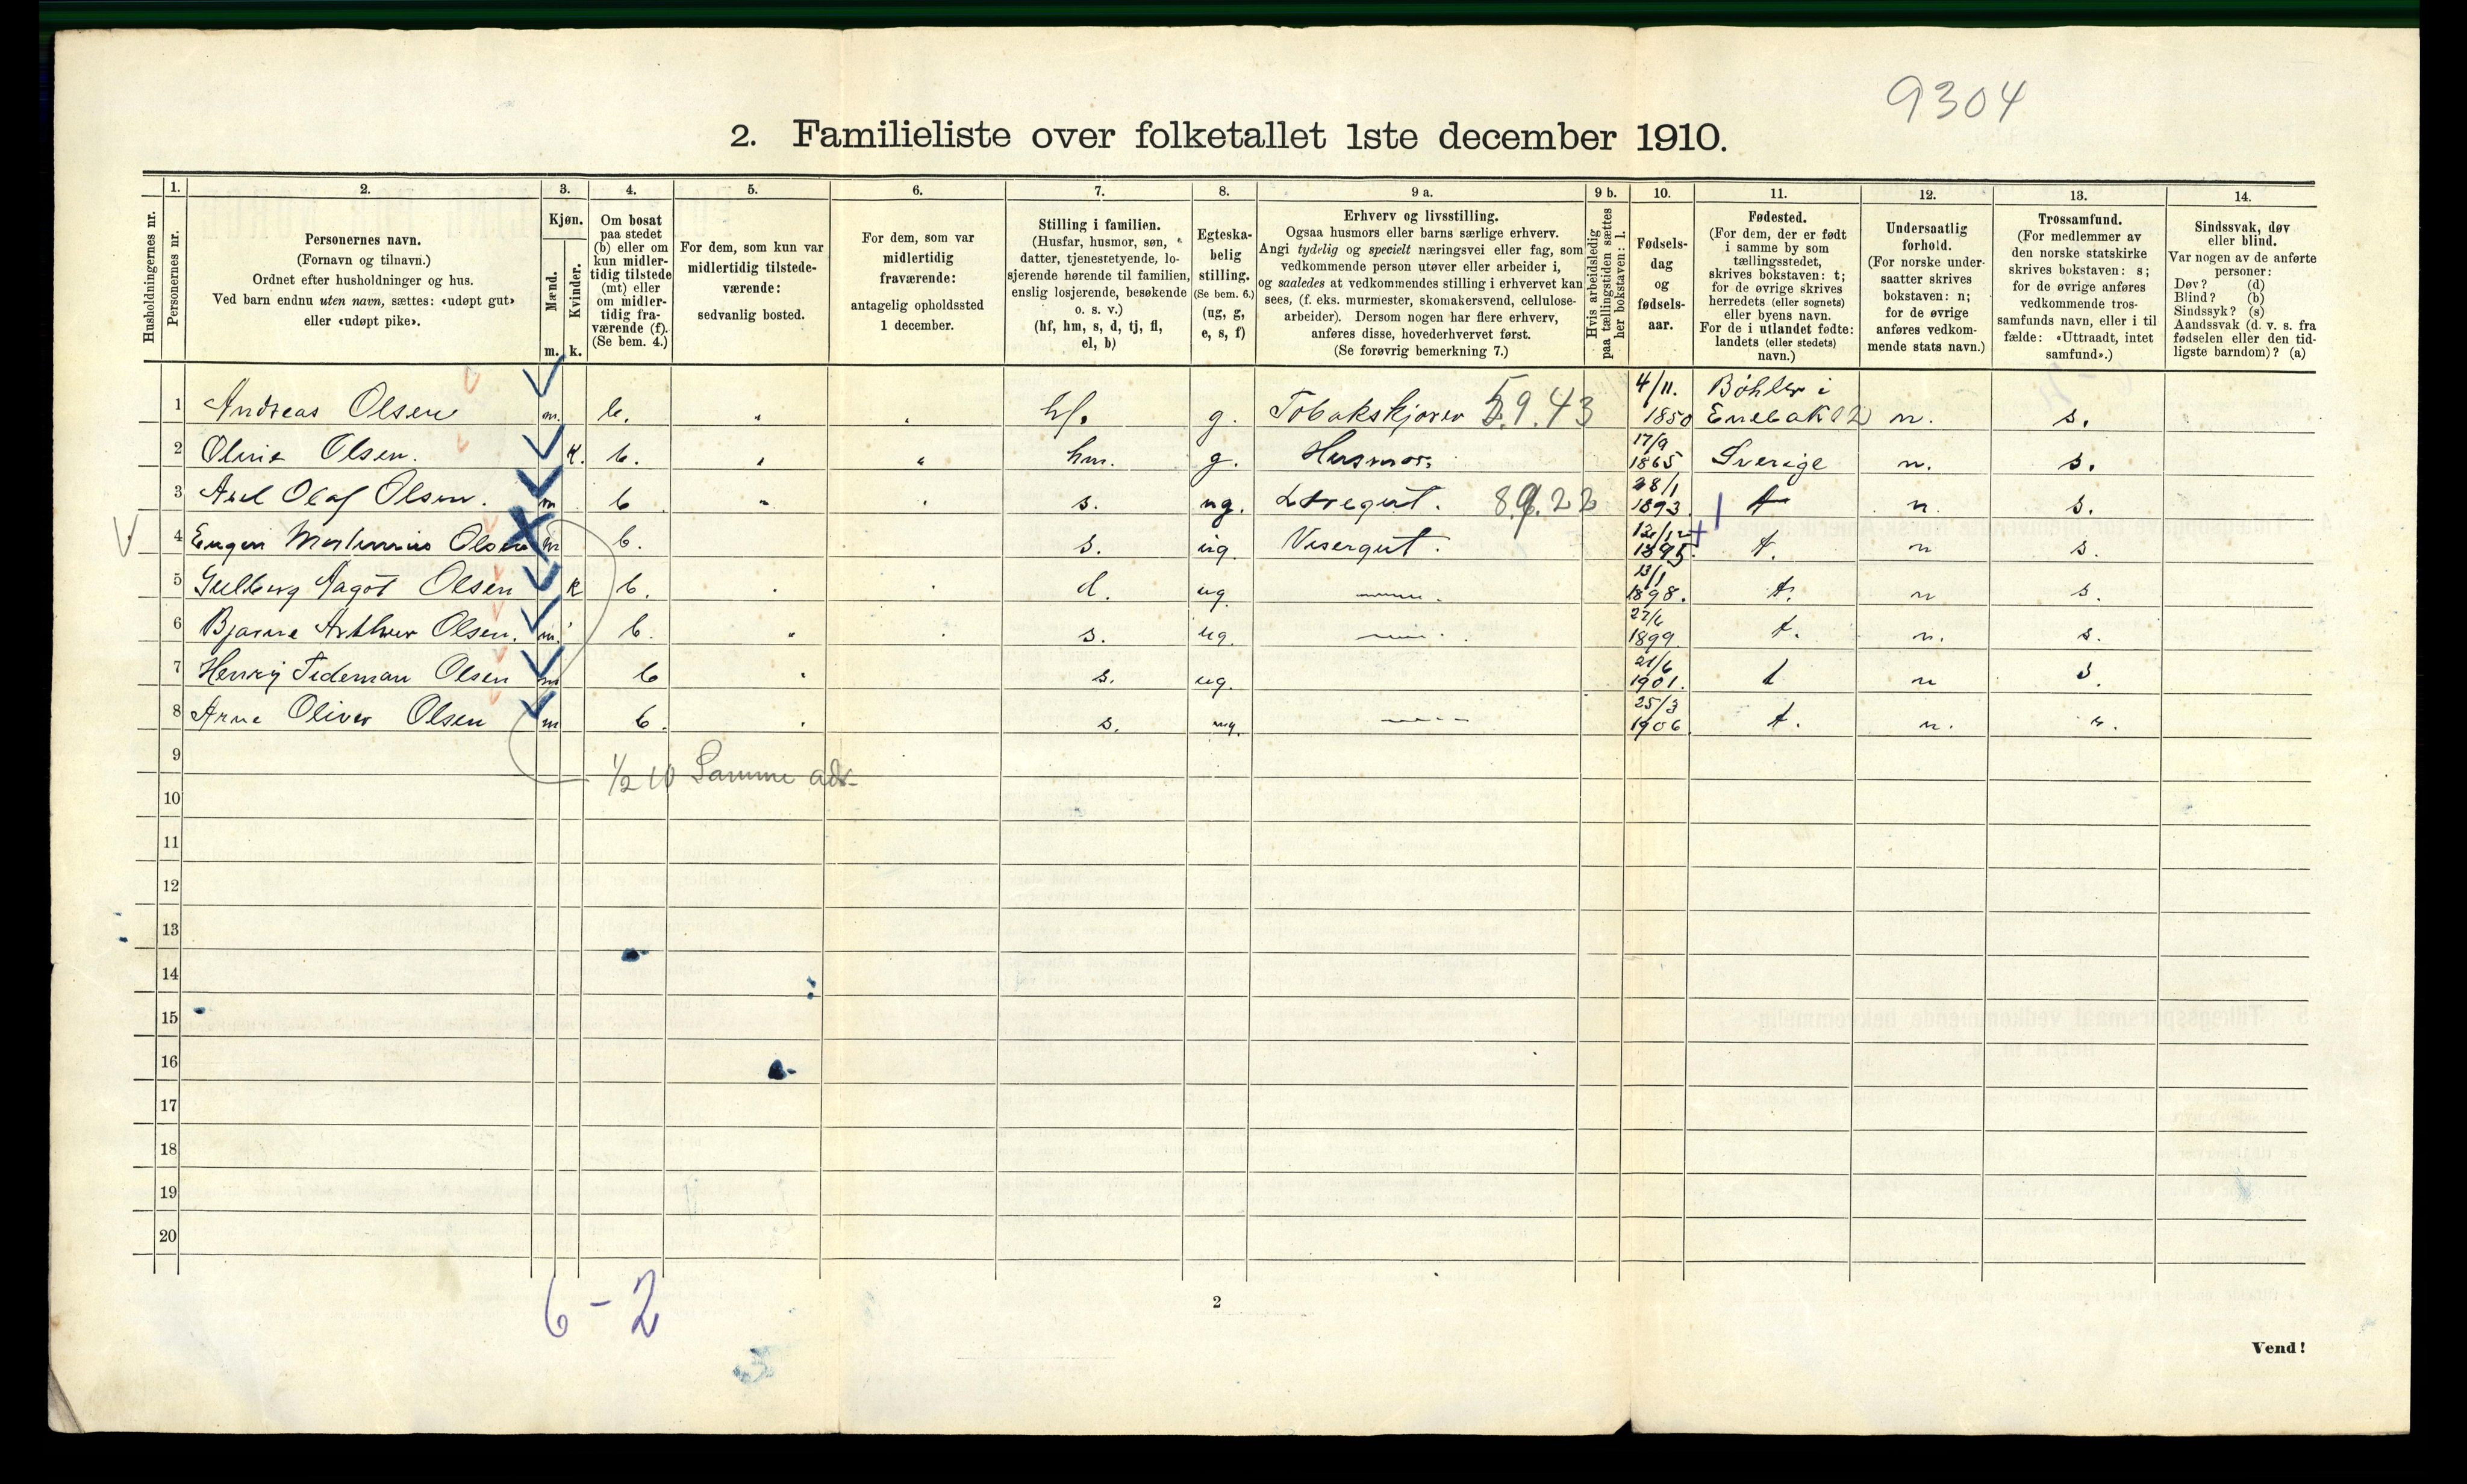 9304
2. Familieliste over folketallet 1ste december 1910.
Husholdningernes nr.
1.
Personernes nr.
2.
Personernes navn.
(Fornavn og tilnavn.)
Ordnet efter husholdninger og hus.
Ved barn endnu uten navn, sættes: «udøpt gut»
eller «udøpt pike».
3.
Kjøn.
Mænd.
Kvinder.
m. k.
4.
Om bosat
paa stedet
(b) eller om
kun midler-
tidig tilstede
(mt) eller
om midler-
tidig fra-
værende (f).
(Se bem. 4.)
5.
For dem, som kun var
midlertidig tilstede-
værende:
sedvanlig bosted.
6.
For dem, som var
midlertidig
fraværende:
antagelig opholdssted
1 december.
7.
Stilling i familien.
(Husfar, husmor, søn,
datter, tjenestetyende, lo-
sjerende hørende til familien,
enslig losjerende, besøkende
o. s. v.)
(hf, hm, s, d, tj, fl,
el, b)
8.
Egteska-
belig
stilling.
(Se bem. 6.)
(ug, g,
e, s, f)
9 a.
Erhverv og livsstilling.
Ogsaa husmors eller barns særlige erhverv.
Angi tydelig og specielt næringsvei eller fag, som
vedkommende person utøver eller arbeider i,
og saaledes at vedkommendes stilling i erhvervet kan
sees, (f. eks. murmester, skomakersvend, cellulose-
arbeider). Dersom nogen har flere erhverv,
anføres disse, hovederhvervet først.
(Se forøvrig bemerkning 7.)
9 b.
Hvis arbeidsledig
paa tællingstiden sættes
her bokstaven: l.
10.
Fødsels-
dag
og
fødsels-
aar.
11.
Fødested.
(For dem, der er født
i samme by som
tællingsstedet,
skrives bokstaven: t;
for de øvrige skrives
herredets (eller sognets)
eller byens navn.
For de i utlandet fødte:
landets (eller stedets)
navn.)
12.
Undersaatlig
forhold.
(For norske under-
saatter skrives
bokstaven: n;
for de øvrige
anføres vedkom-
mende stats navn.)
13.
Trossamfund.
(For medlemmer av
den norske statskirke
skrives bokstaven: s;
for de øvrige anføres
vedkommende tros-
samfunds navn, eller i til
fælde: «Uttraadt, intet
samfund».)
14.
Sindssvak, døv
eller blind.
Var nogen av de anførte
personer:
Døv? (d)
Blind? (b)
Sindssyk? (s)
Aandssvak (d. v. s. fra
fødselen eller den tid-
ligste barndom)? (a)
1 Andreas Olsen m. b. hf. g. Tobakskjører 59.43 4/11. 1850 Bøhler i Enebak 02 n. s.
2 Oline Olsen. k. b. hm. g. Husmor. 17/9 1865 Sverige n. s.
3 Axel Olaf Olsen. m b s. ug. 28/1 1893 t n. s.
4 Eugen Martinius Olsen m b. s. ug. Visergut. 1895. t. n s.
5 Aagot Olsen k b. d. ug. 13/1 1898. t. n s.
6 Bjarne Arthur Olsen. m. b. s. ug. 1899. t. n. s.
7 Henry Tideman Olsen m b s. ug. 21/6 1901. t n s.
8 Arne Oliver Olsen m b. s. ug. 25/3 1906 t. n. s.
9
1/2 10 Samme adr
10
11
12
13
14
15
16
17
18
19
20
6-2
2
Vend!